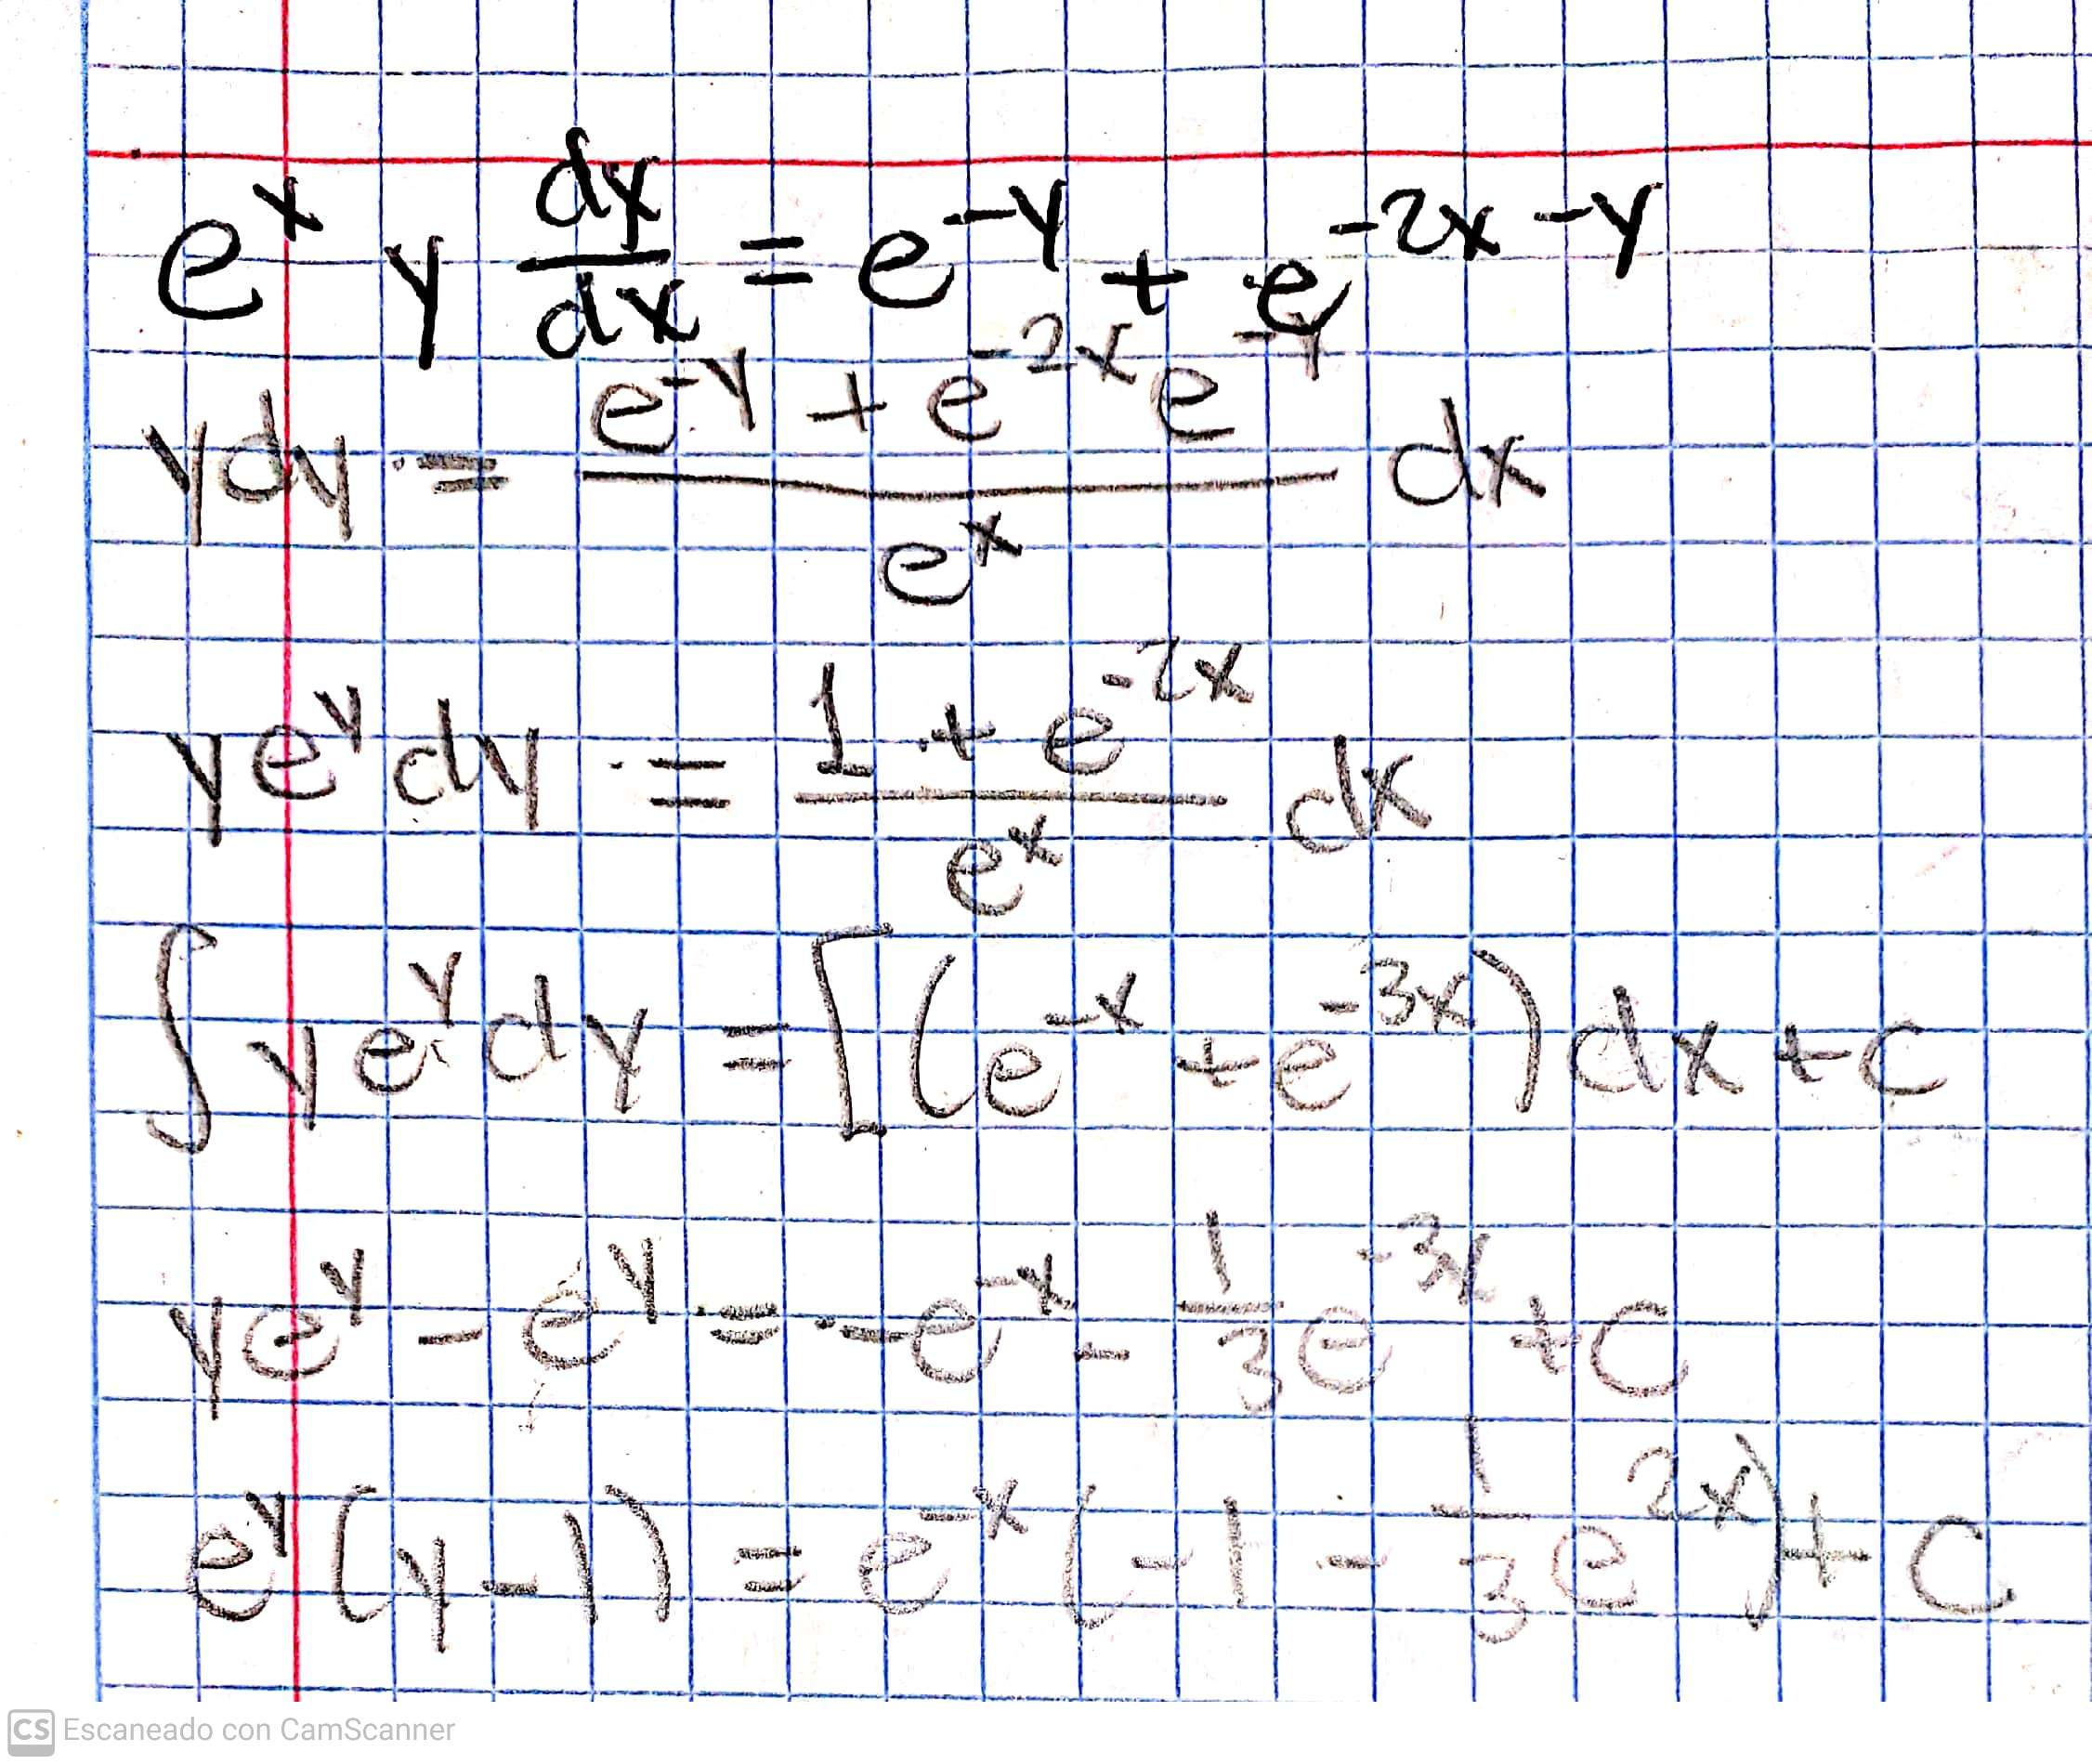 e^x y dy/dx = e^-y + e^-2x-y
ydy = (e^-y + e^-2x e^-y)/e^x dx
ye^y dy = (1 + e^-2x)/e^x dx
∫ ye^y dy = [(e^-x + e^-3x) dx + c
ye^y - e^y = -e^-x - 1/3 e^-3x + C
e^y (y-1) = e^-x (-1 - 1/3 e^2x) + C
CS Escaneado con CamScanner